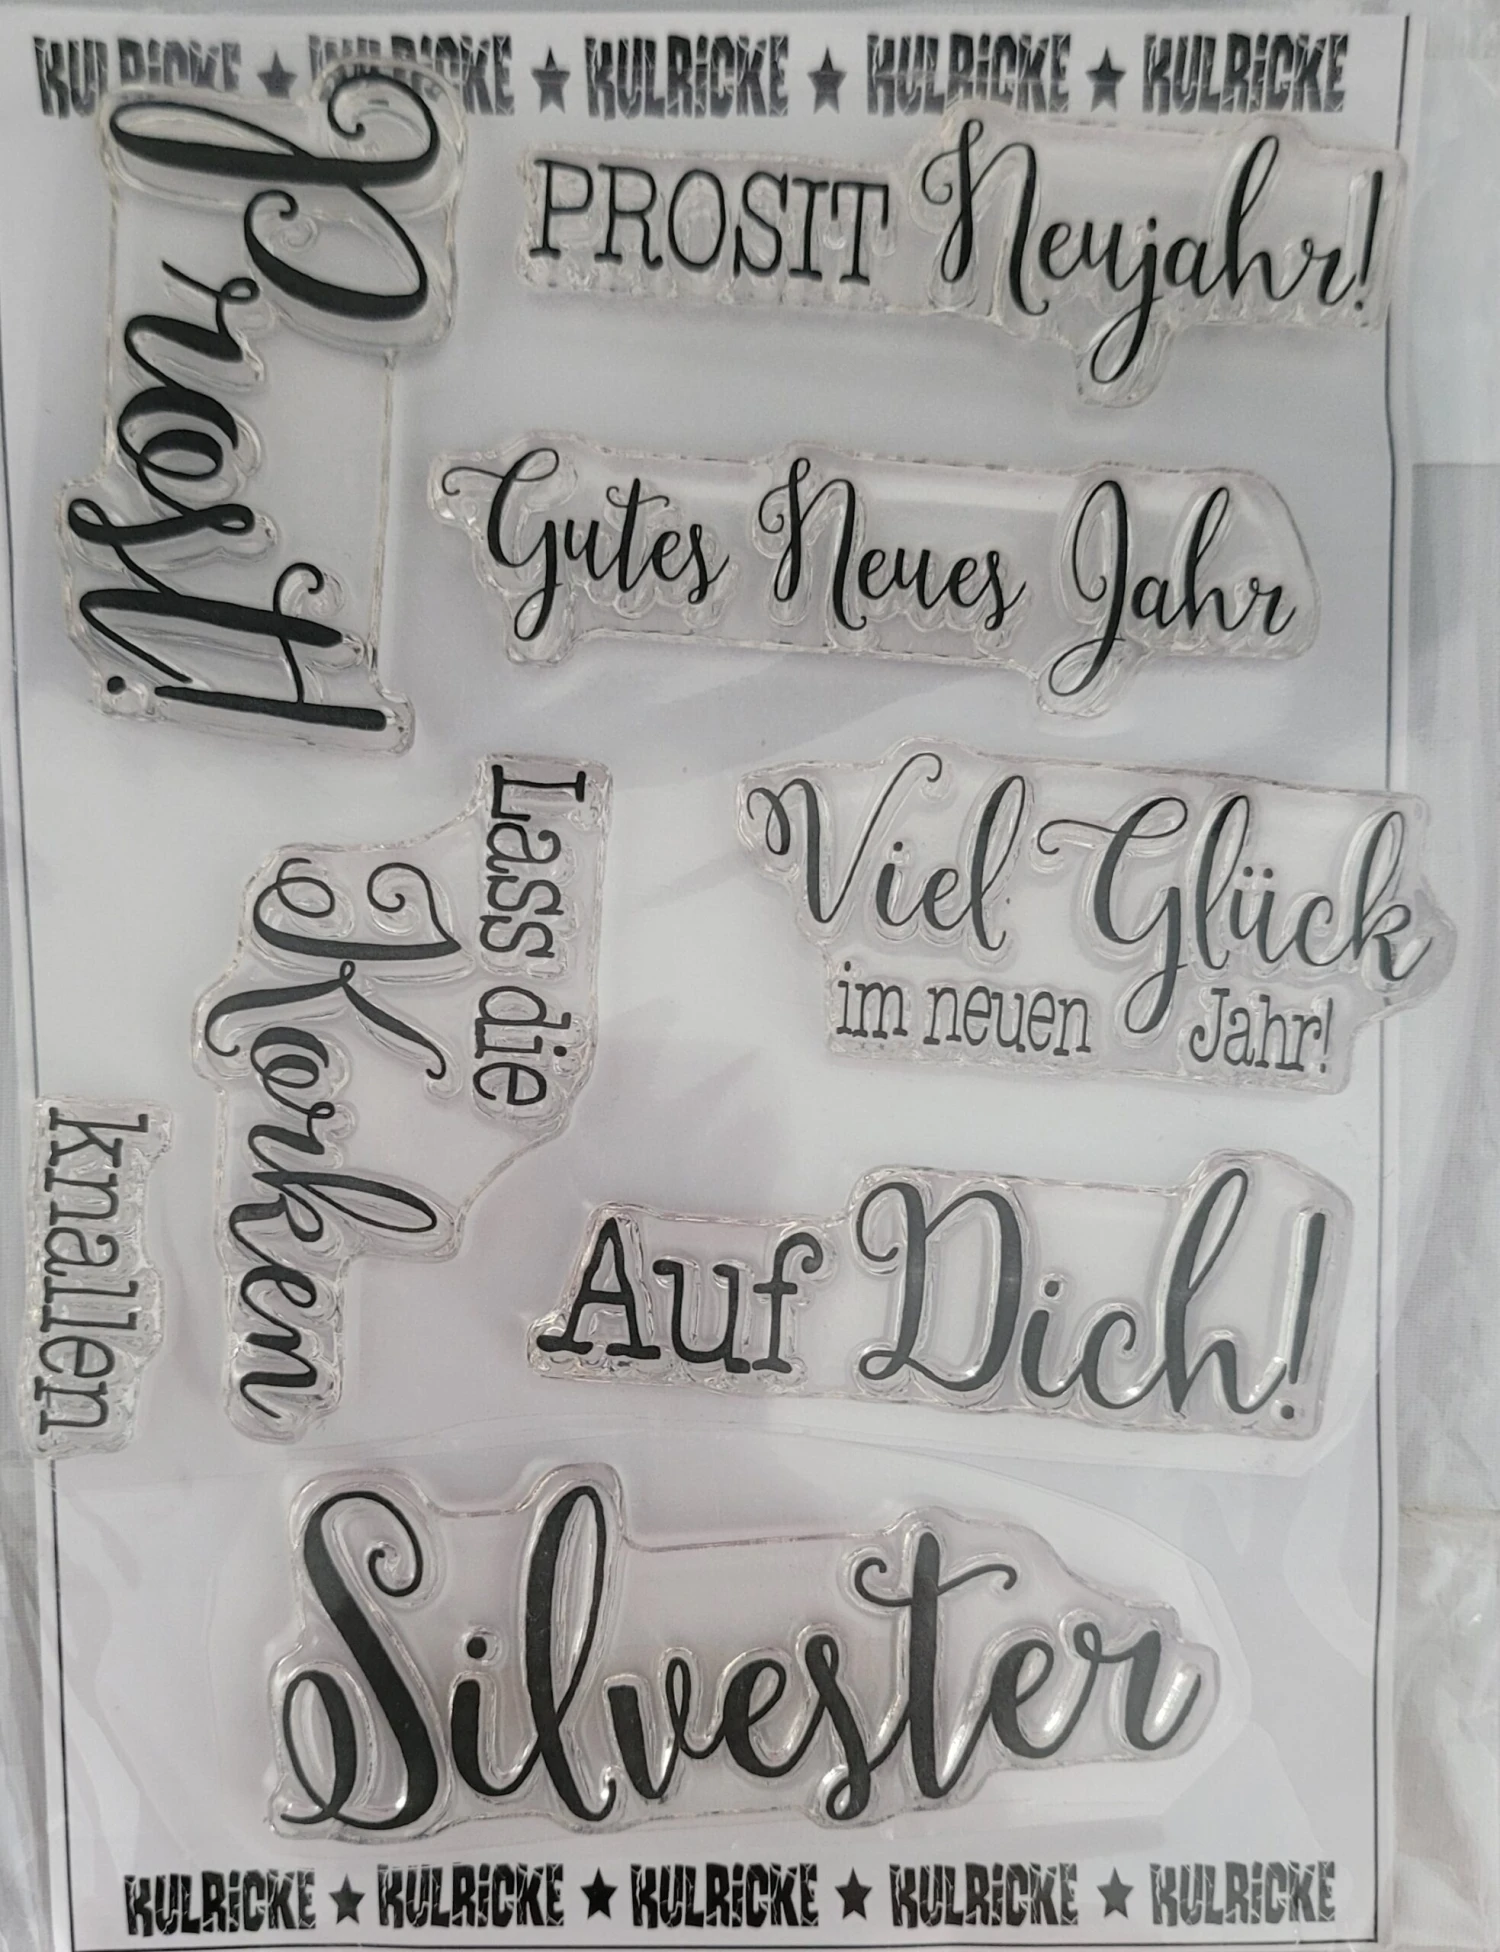 KULRICKE ★ KULRICKE ★ KULRICKE ★ KULRICKE ★ KULRICKE
Prost!
PROSIT Neujahr!
Gutes Neues Jahr
Viel Glück
im neuen Jahr!
Lass die
Korken
knallen
Auf Dich!
Silvester
KULRICKE ★ KULRICKE ★ KULRICKE ★ KULRICKE ★ KULRICKE